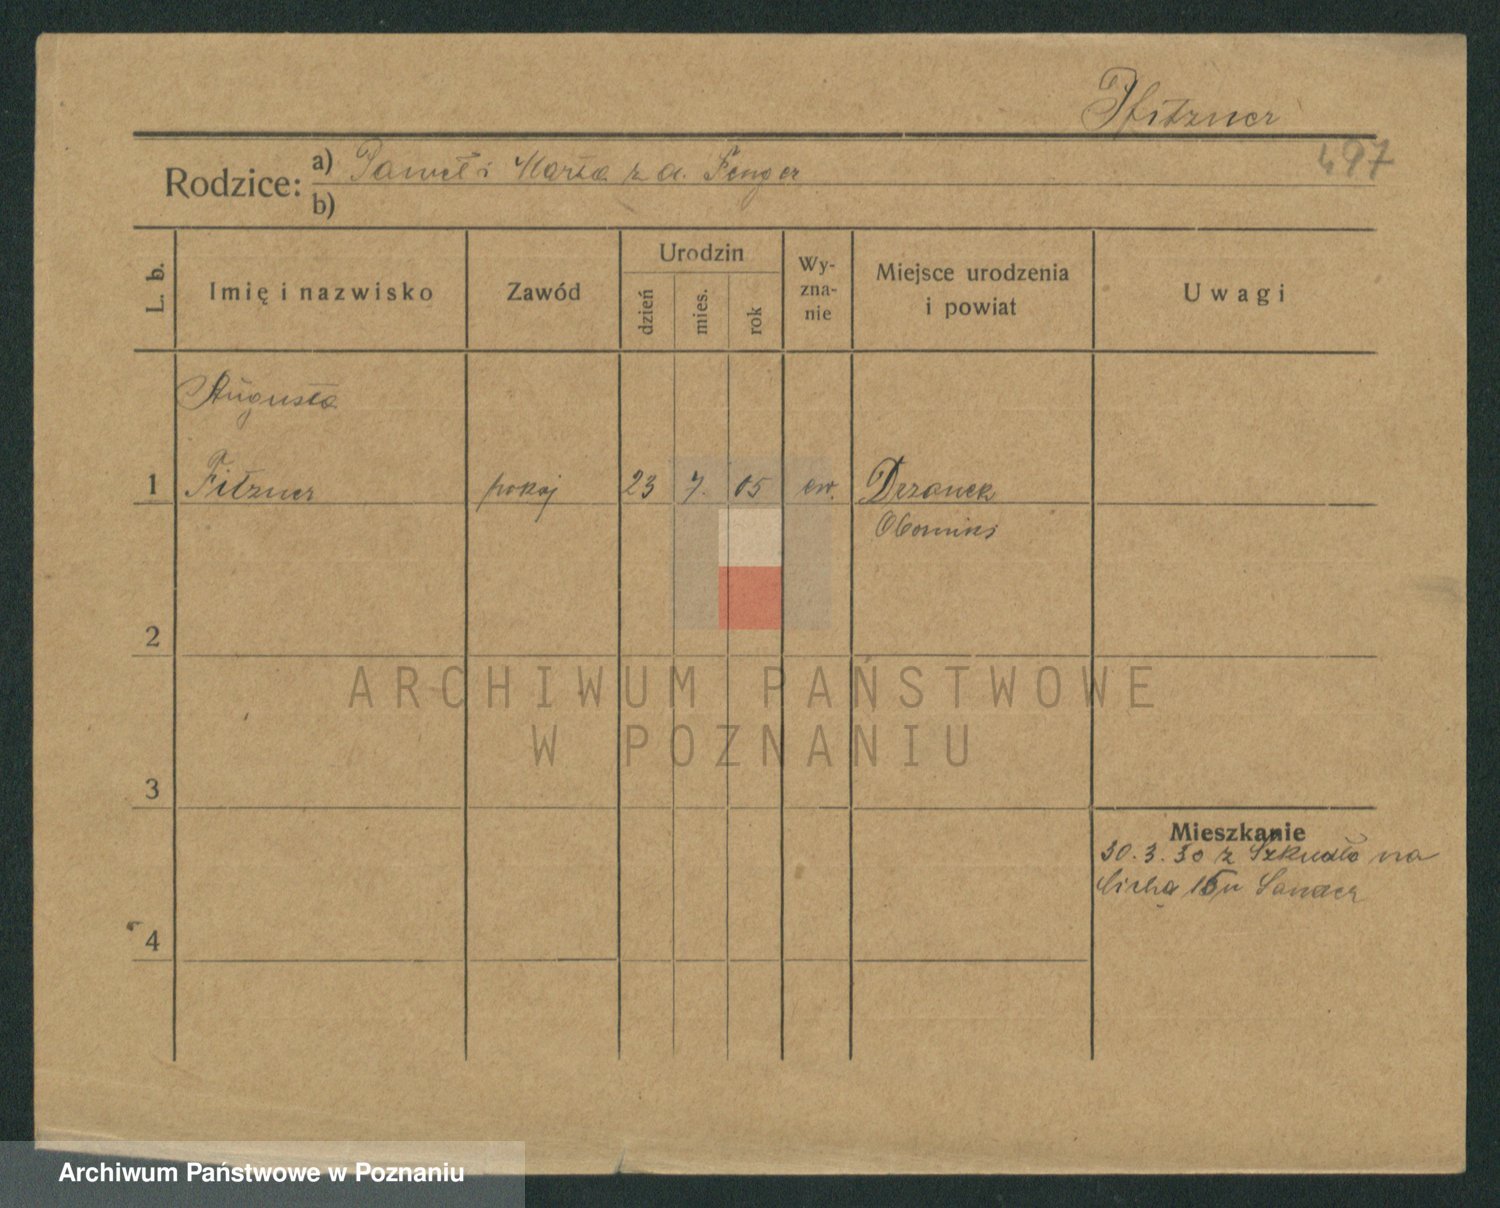 Pfitzner
497
Rodzice:
a) Paweł i Marta z d. Fenger
b)
L. b.
Imię i nazwisko
Zawód
Urodzin
dzień
mies.
rok
Wy-
zna-
nie
Miejsce urodzenia
i powiat
Uwagi
Augusta
1 Fitzner pokoj 23 7. 05 ew.
Oborniki
2
3
4
Mieszkanie
30.3.30 z na
Cicha 15 u
ARCHIWUM PAŃSTWOWE
W POZNANIU
Archiwum Państwowe w Poznaniu